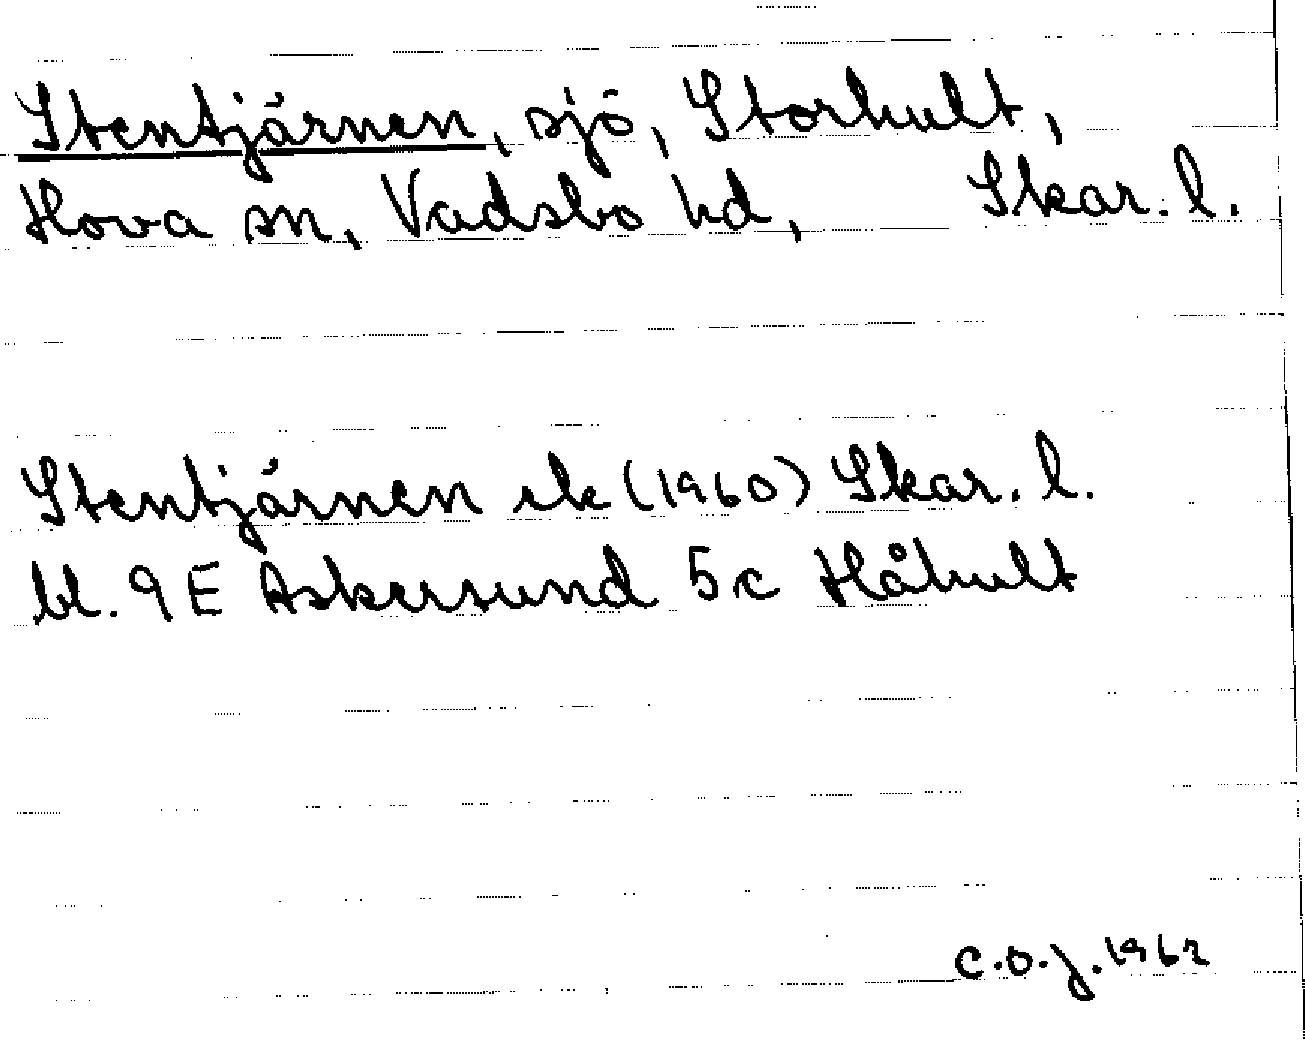 Stentjärnen, sjö, Storhult,
Hova sn, Vadsbo hd, Skar. l.
Stentjärnen ek (1960) Skar. l.
bl. 9 E Askersund 5 c Håhult
C.O.J. 1962